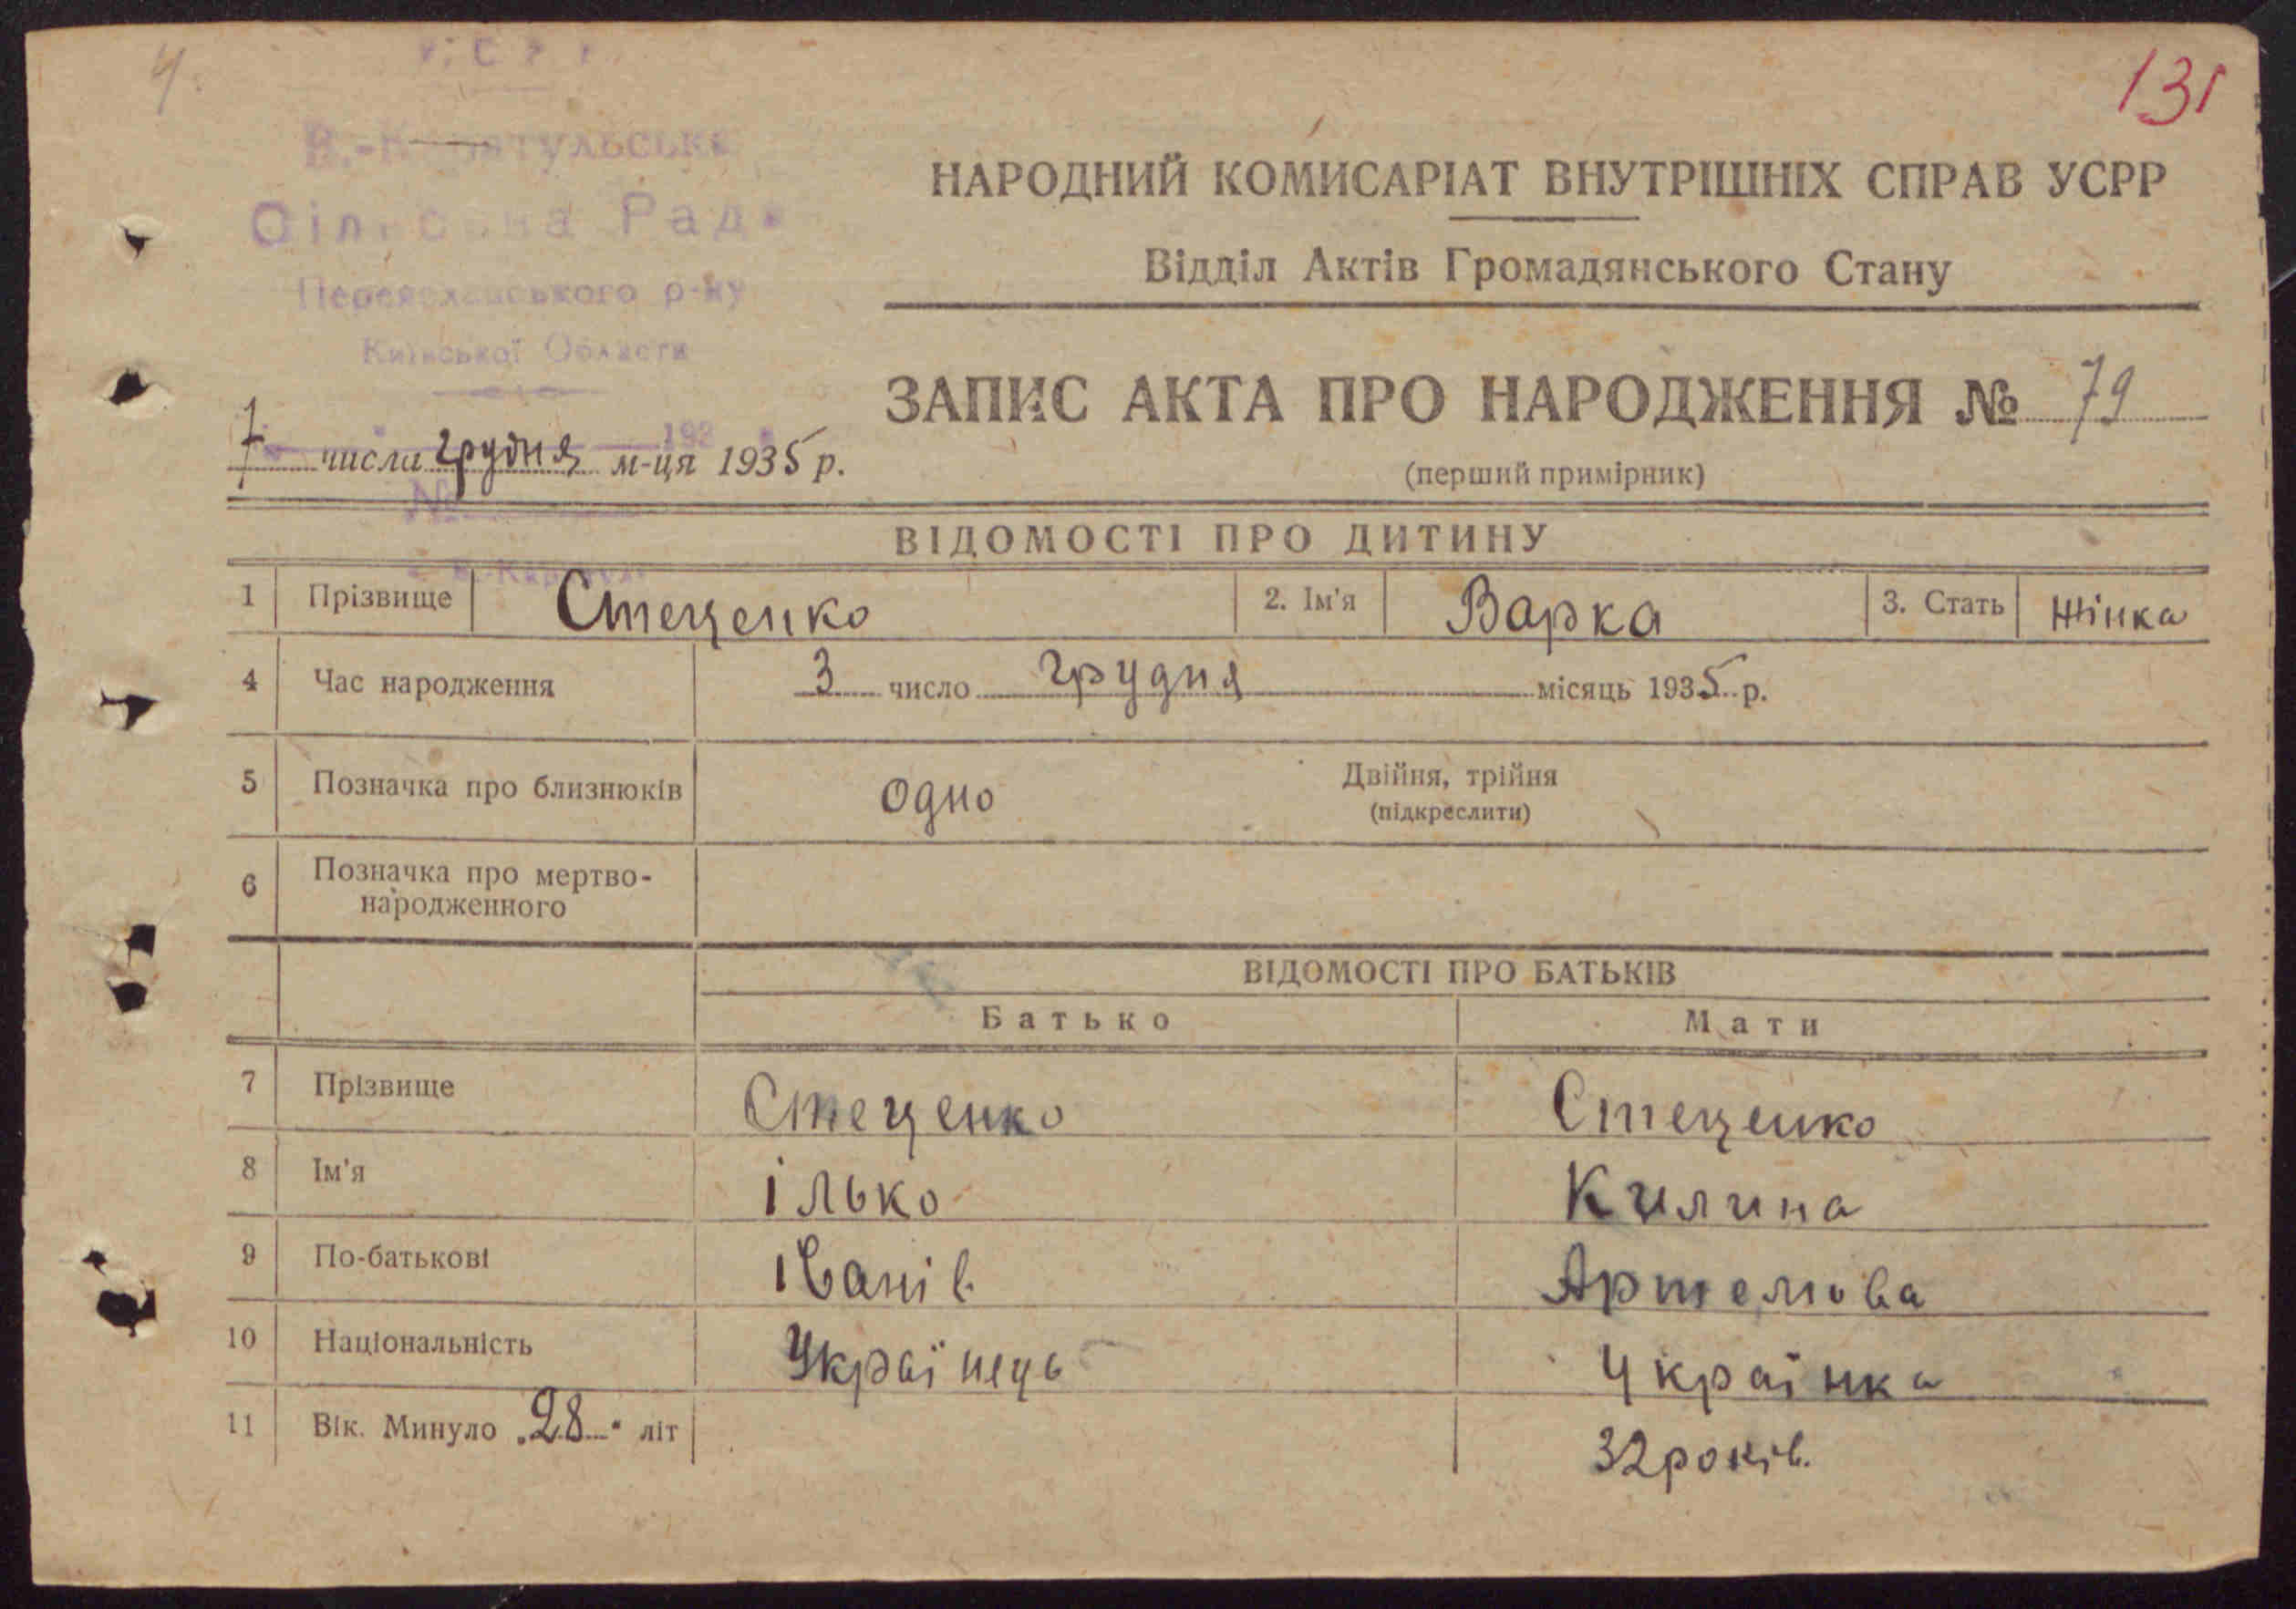 4.
131
В.-Каратульська
Сільовна Рада
Переяславського р-ну
Київської Области
НАРОДНИЙ КОМИСАРІАТ ВНУТРІШНІХ СПРАВ УСРР
Відділ Актів Громадянського Стану
ЗАПИС АКТА ПРО НАРОДЖЕННЯ № 79
7 числа грудня м-ця 1935 р.
(перший примірник)
№
ВІДОМОСТІ ПРО ДИТИНУ
1 Прізвище Стеценко 2. Ім'я Варка 3. Стать жінка
4 Час народження 3 число грудня місяць 1935 р.
5 Позначка про близнюків одно Двійня, трійня
(підкреслити)
6 Позначка про мертво-
народженного
ВІДОМОСТІ ПРО БАТЬКІВ
Батько Мати
7 Прізвище Стеценко Стеценко
8 Ім'я ілько Килина
9 По-батькові іванів Артемова
10 Національність Українець Українка
11 Вік. Минуло „28" літ 32 років.